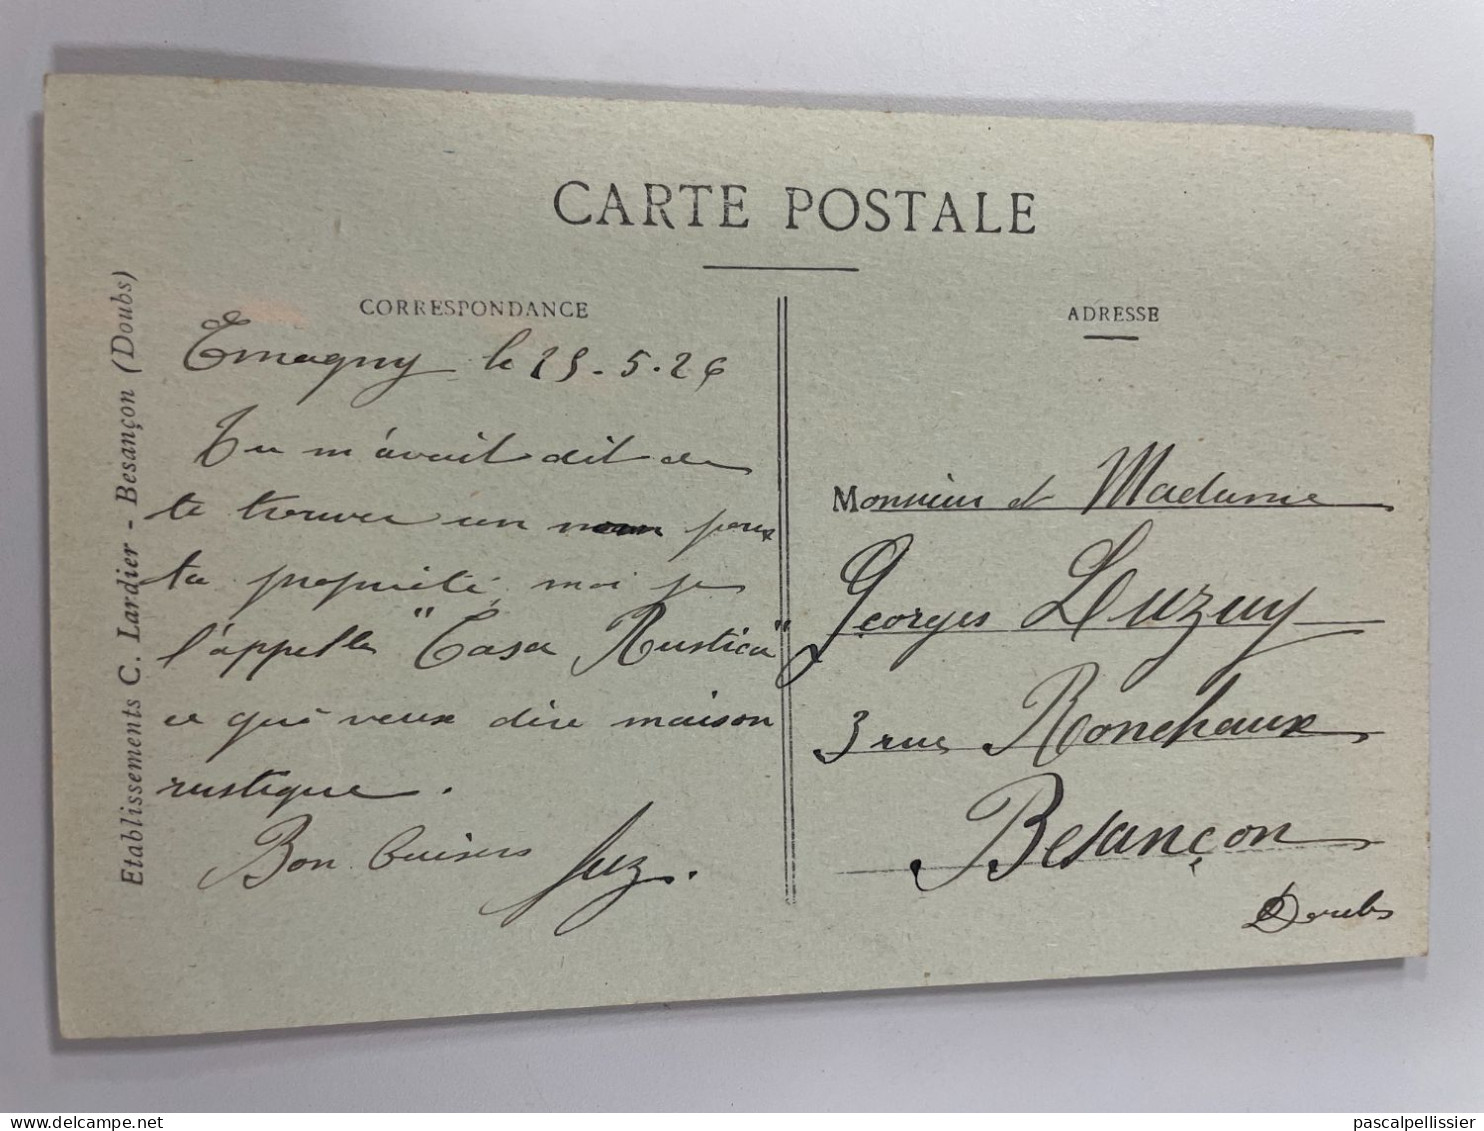 CARTE POSTALE
CORRESPONDANCE
Emagny le 23.5.26
Tu m'avait dit de
te trouver un nom pour
ta propriété, moi je
l'appelle "Casa Rustica"
ce qui veux dire maison
rustique.
Bon baisers
ADRESSE
Monsieur et Madame
Georges Luzuy
3 rue Ronchaux
Besançon
Doubs
Etablissements C. Lardier - Besançon (Doubs)
www.delcampe.net
pascalpellissier